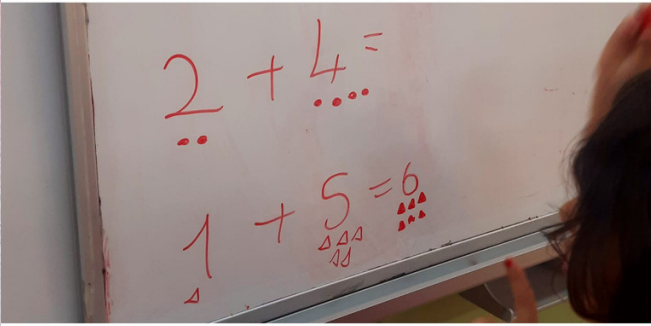 2 + 4 =
1 + 5 = 6